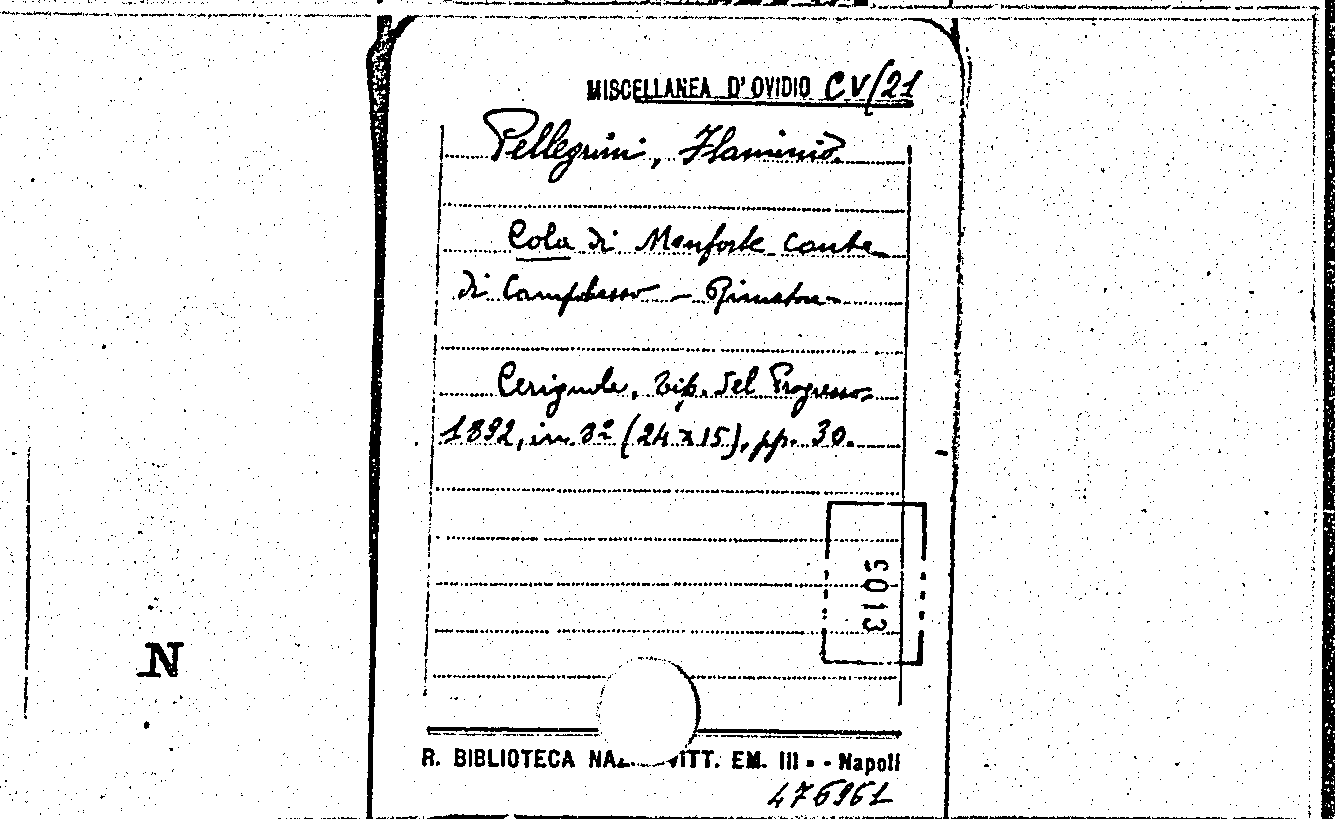 MISCELLANEA D'OVIDIO CV/21
Pellegrini, Flaminio.
Cola di Monforte conte
di Campobasso - Rimatore
Cerignola, tip. del Progresso
1892, in 8º (24 x 15), pp. 30.
5013
N
R. BIBLIOTECA NAZ. VITT. EM. III - - Napoli
476961